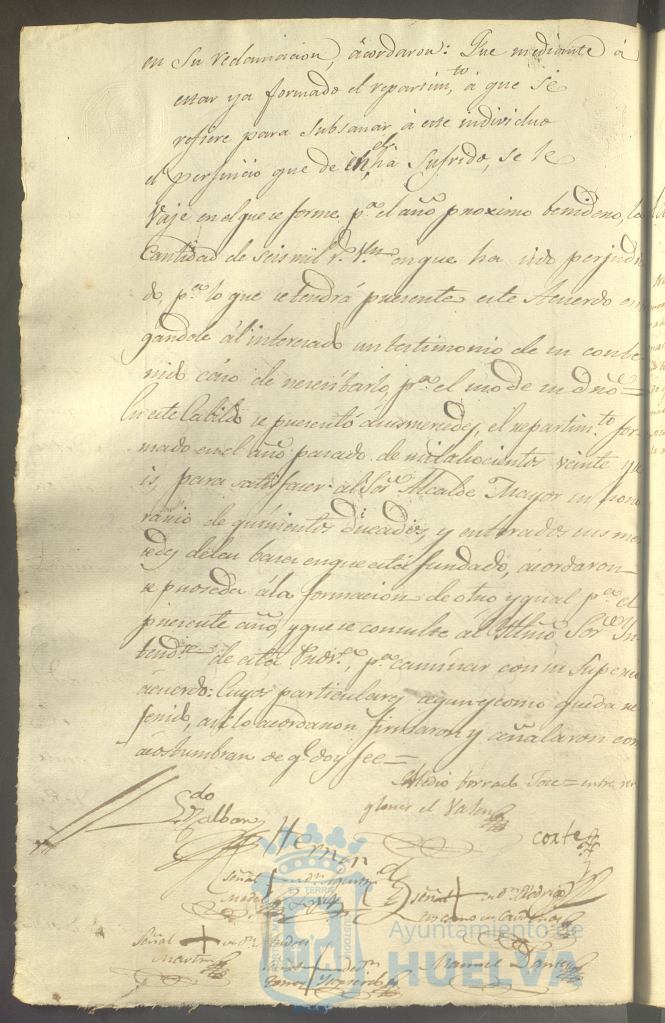 en su reclamacion, acordaron: Que mediante á
estar ya formado el repartim.to, á que se
refiere para subsanar, á este individuo
el perjuicio que de él ha sufrido, se le
vaje en el que se forme p.a el año proximo benidero, la
Cantidad de seis mil r.s V.n en que ha sido perjudi
do, p.a lo que se tendrá presente este Acuerdo en
gandole al interesado un testimonio de su conte
nido caso de necesitarlo, p.a el uso de su dro=
En este Cabildo se presentó á sus mercedes, el repartim.to for
mado en el año pasado de mil ochocientos veinte y se
is, para satisfacer al Sor Alcalde Mayor su hono
rario de quinientos ducados, y enterados sus mer
cedes de las bases en que está fundado, acordaron
se proseda á la formacion de otro ygual p.a el
presente año, y que se consulte al Yltmo Sor Yn
tend.te de esta Prov.a, p.a caminar con su Superior
acuerdo: Cuyos particulares según y como queda re
ferido, así lo acordaron firmaron y señalaron con
acostumbran de q.e doy fee=
Medio borrado= entre ren
glones= él Valen
Ldo
Cortes
Hernan
Señal + de
Señal + de Dn Rodrigo
Señal + de Dn Andres
Martin
Señal + de Dn
Manuel
Ayuntamiento de
HUELVA